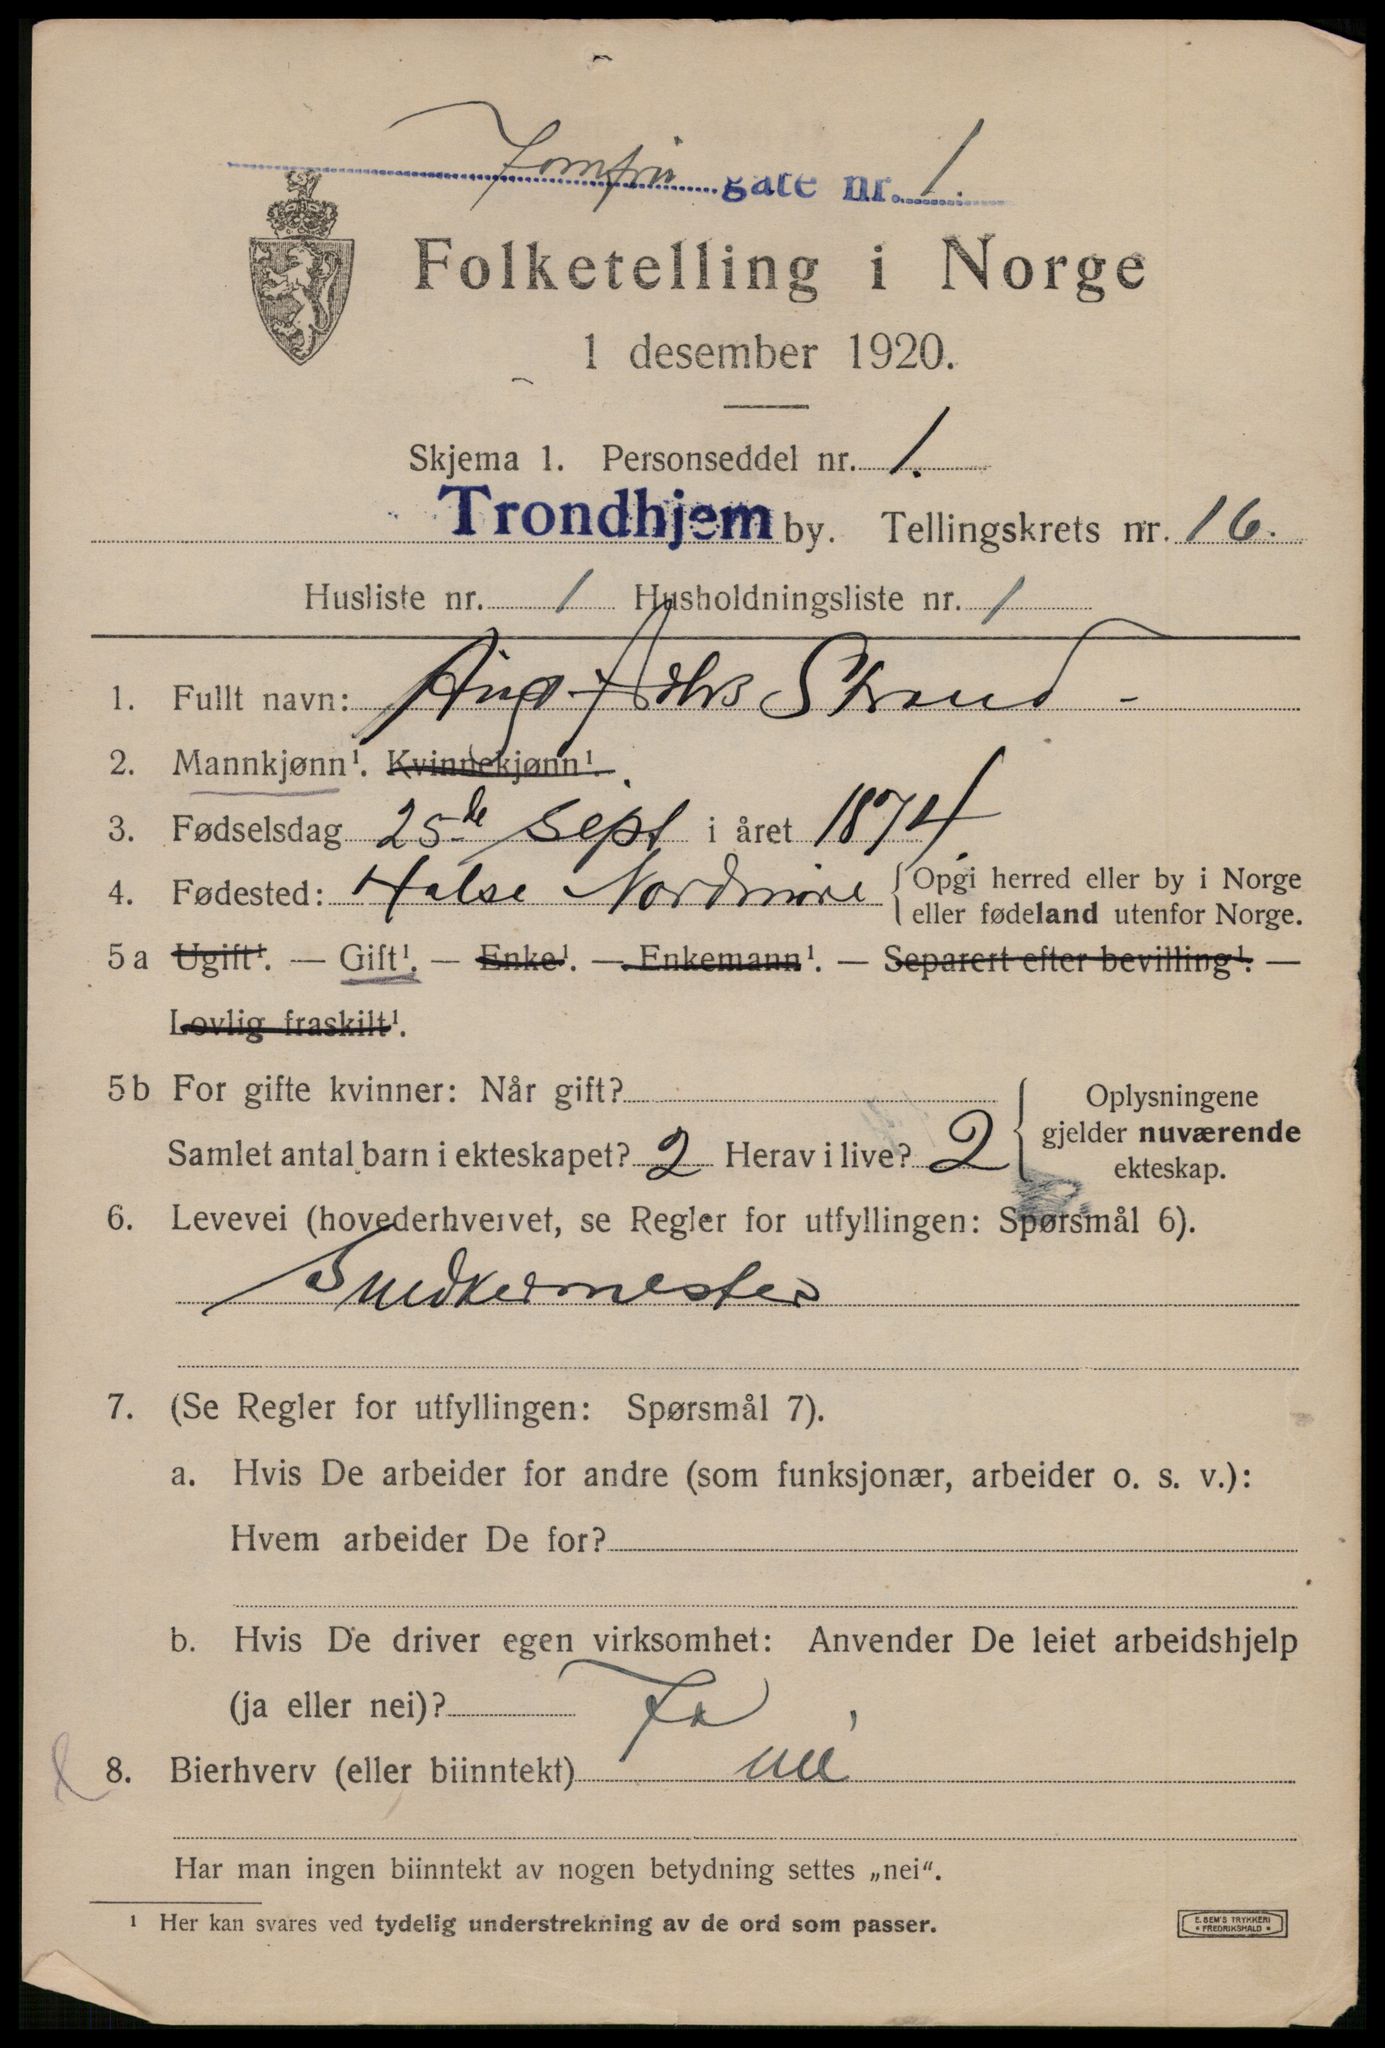 Jomfru gate nr. 1.
Folketelling i Norge
1 desember 1920.
Skjema 1. Personseddel nr. 1.
Trondhjem by. Tellingskrets nr. 16.
Husliste nr. 1 Husholdningsliste nr. 1
1. Fullt navn: Strand
2. Mannkjønn¹. Kvinnekjønn¹.
3. Fødselsdag 25de Sept i året 1874
4. Fødested: Halse Nordmøre { Opgi herred eller by i Norge
eller fødeland utenfor Norge.
5a Ugift¹. — Gift¹. — Enke¹. — Enkemann¹. — Separert efter bevilling¹. —
Lovlig fraskilt¹.
5b For gifte kvinner: Når gift?
Samlet antal barn i ekteskapet? 2 Herav i live? 2
{ Oplysningene
gjelder nuværende
ekteskap.
6. Levevei (hovederhvervet, se Regler for utfyllingen: Spørsmål 6).
Snedkermester
7. (Se Regler for utfyllingen: Spørsmål 7).
a. Hvis De arbeider for andre (som funksjonær, arbeider o. s. v.):
Hvem arbeider De for?
b. Hvis De driver egen virksomhet: Anvender De leiet arbeidshjelp
(ja eller nei)? Ja
8. Bierhverv (eller biinntekt) nei
Har man ingen biinntekt av nogen betydning settes „nei".
¹ Her kan svares ved tydelig understrekning av de ord som passer.
E. SEM'S TRYKKERI
FREDRIKSHALD